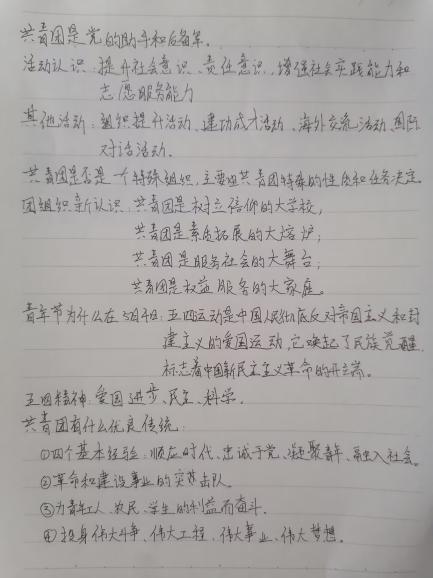 共青团是党的助手和后备军.
活动认识:提升社会意识、责任意识,增强社会实践能力和
志愿服务能力
其他活动:组织提升活动、建功成才活动、海外交流活动、团队
对话活动.
共青团是否是一个特殊组织,主要由共青团特殊的性质和任务决定.
团组织新认识:共青团是树立信仰的大学校,
共青团是素质拓展的大熔炉;
共青团是服务社会的大舞台;
共青团是权益服务的大家庭。
青年节为什么在5月4日:五四运动是中国人民彻底反对帝国主义和封
建主义的爱国运动,它唤起了民族觉醒.
标志着中国新民主主义革命的开端。
五四精神:爱国、进步、民主、科学.
共青团有什么优良传统:
①四个基本经验:顺应时代、忠诚于党、凝聚青年、融入社会。
②革命和建设事业的突击队.
③为青年工人、农民、学生的利益而奋斗.
④投身伟大斗争、伟大工程、伟大事业、伟大梦想.